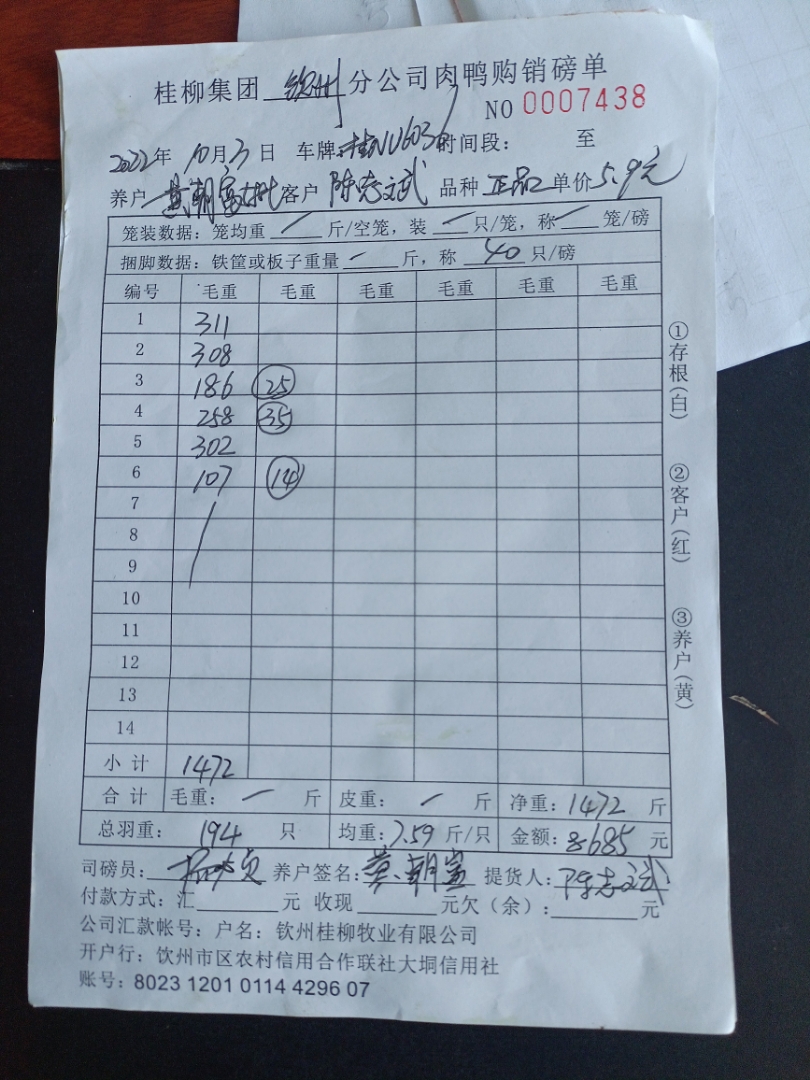 桂柳集团 钦州 分公司肉鸭购销磅单
NO 0007438
2022年 10月3日 车牌: 时间段: 至
养户 客户 陈志斌 品种 正品 单价5.9元
笼装数据: 笼均重 / 斤/空笼, 装 / 只/笼, 称 / 笼/磅
捆脚数据: 铁筐或板子重量 / 斤, 称 40 只/磅
编号 毛重 毛重 毛重 毛重 毛重 毛重
1 311
2 308
3 186 25
4 258 35
5 302
6 107 14
7
8
9
10
11
12
13
14
小计 1472
合计 毛重: / 斤 皮重: / 斤 净重: 1472 斤
总羽重: 194 只 均重: 7.59 斤/只 金额: 8685 元
司磅员: 养户签名: 提货人: 陈志斌
付款方式: 汇 元 收现 元欠(余): 元
公司汇款帐号: 户名: 钦州桂柳牧业有限公司
开户行: 钦州市区农村信用合作联社大垌信用社
账号: 8023 1201 0114 4296 07
①存根(白)
②客户(红)
③养户(黄)